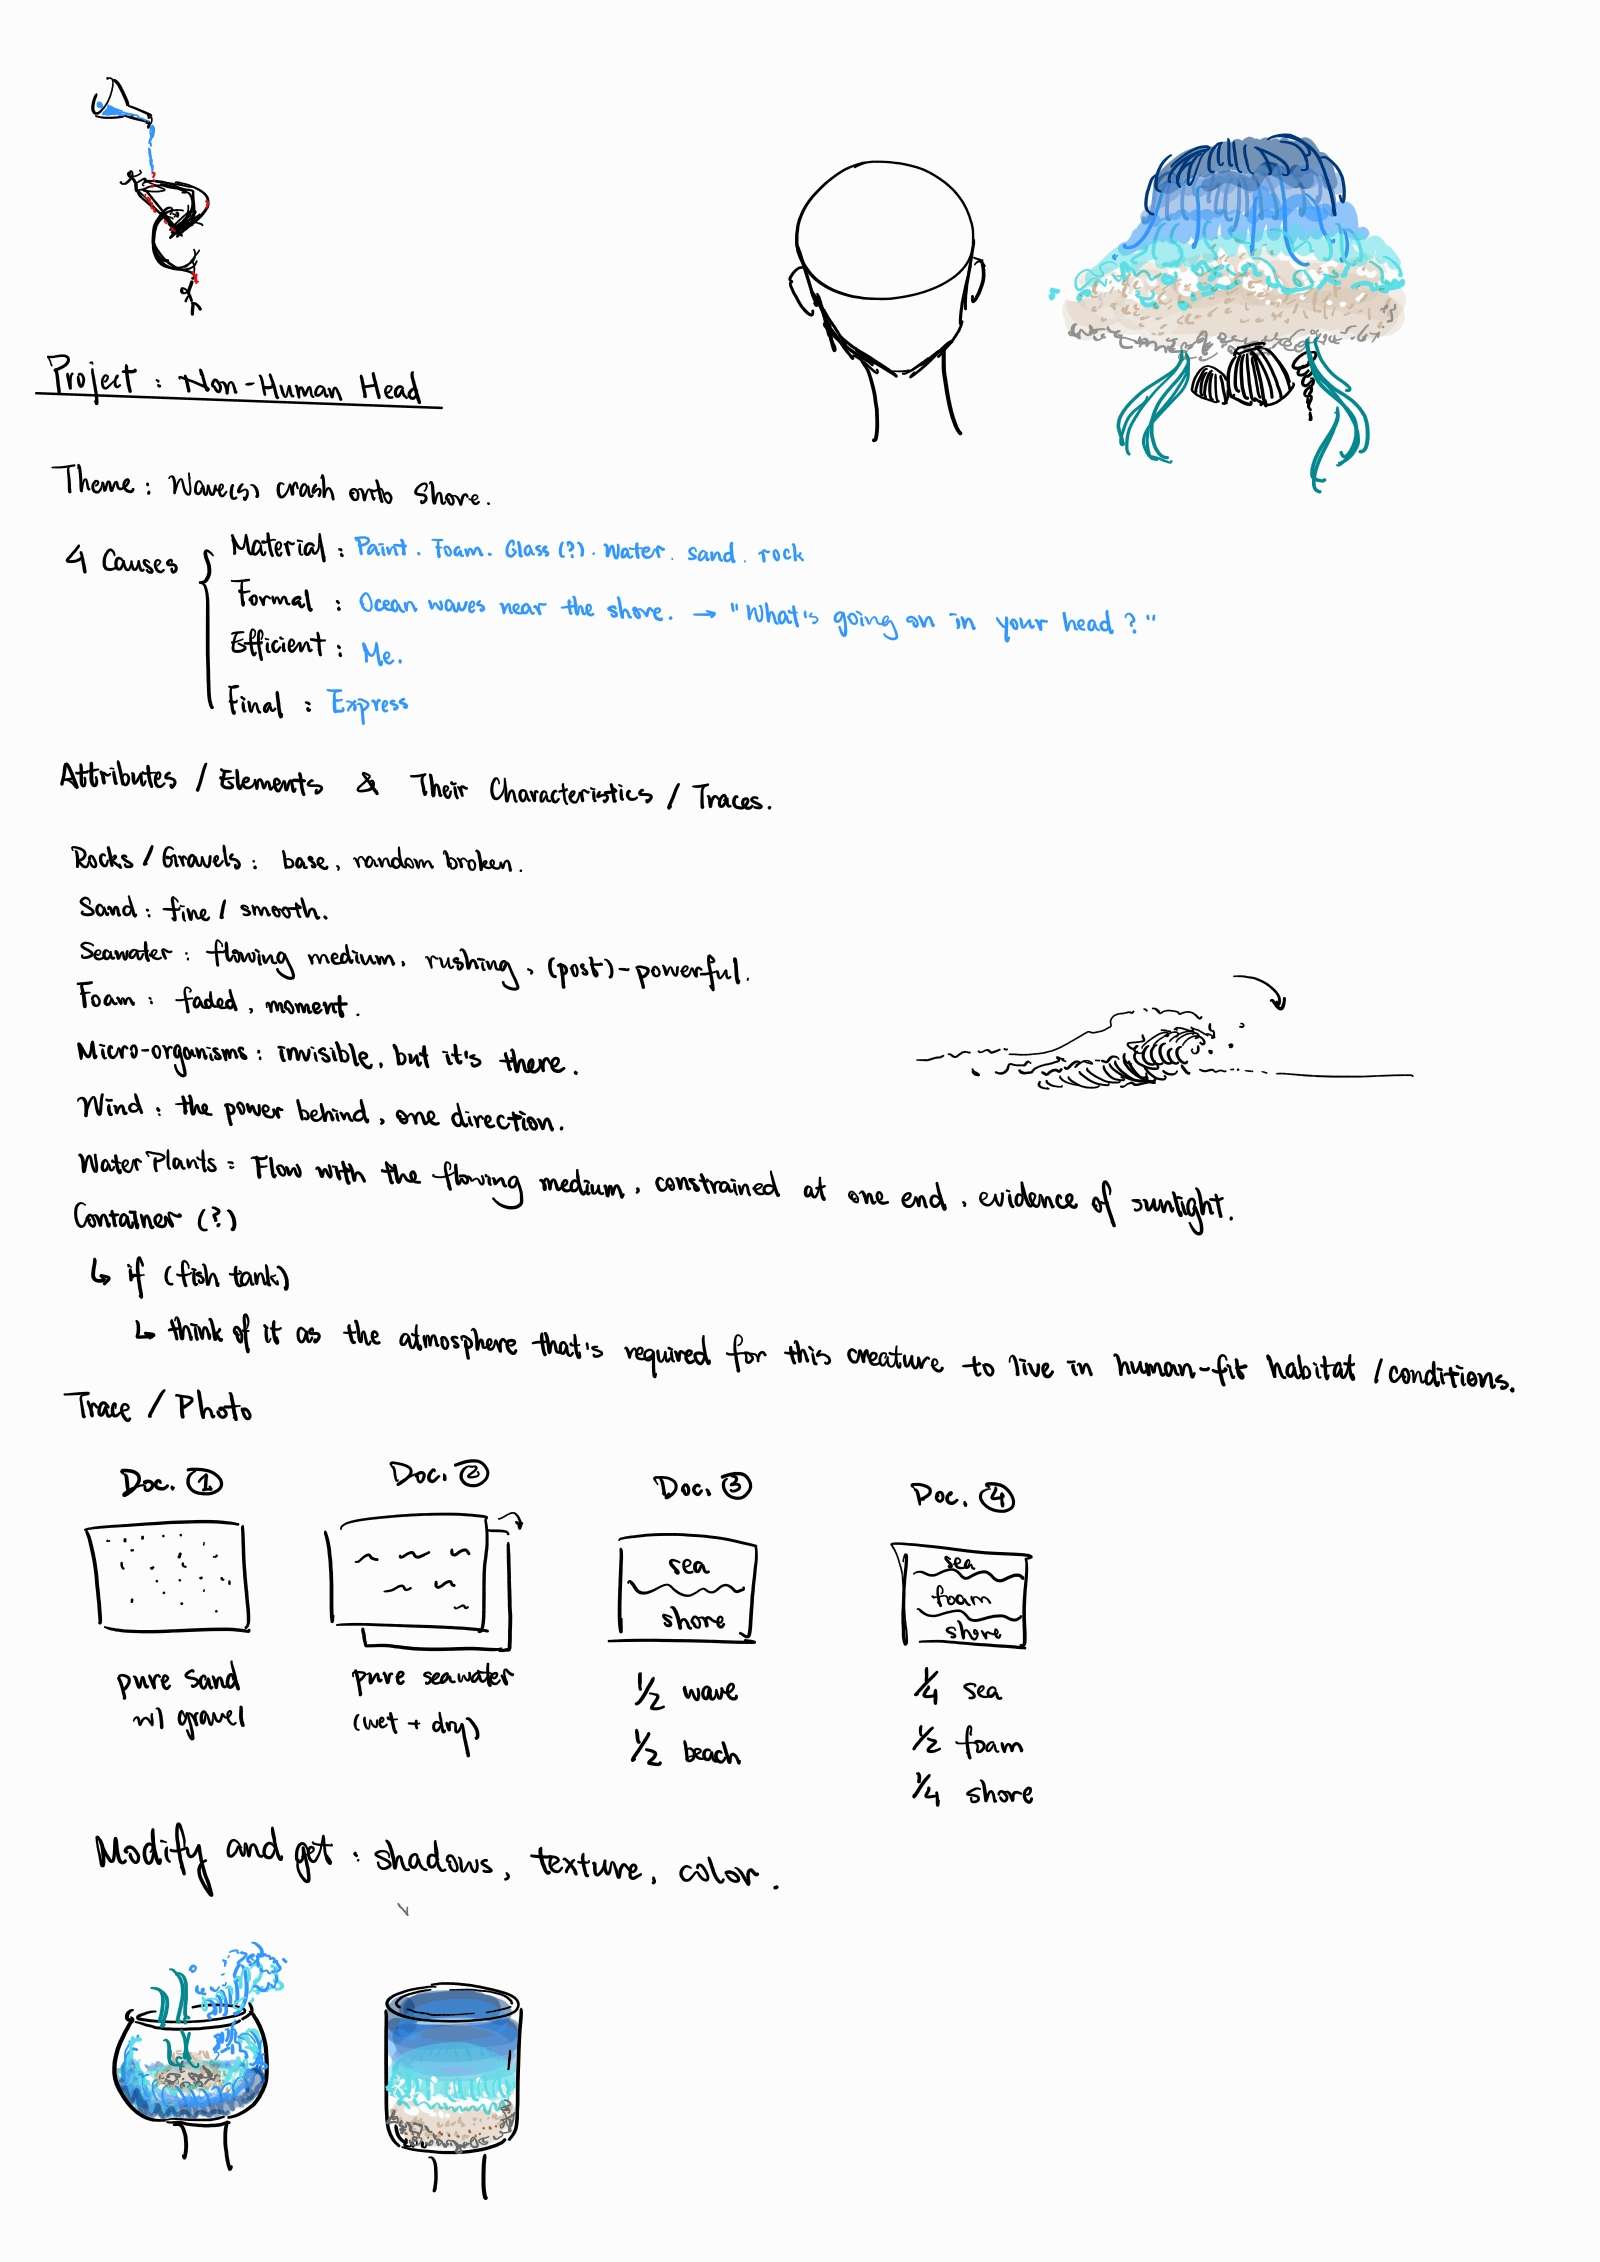 Project : Non-Human Head
Theme : Wave(s) crash onto Shore.
4 Causes
Material : Paint. Foam. Glass (?). Water. sand. rock
Formal : Ocean waves near the shore. → "What's going on in your head ?"
Efficient : Me.
Final : Express
Attributes / Elements & Their Characteristics / Traces.
Rocks / Gravels : base, random broken.
Sand : fine / smooth.
Seawater : flowing medium, rushing, (post)-powerful.
Foam : faded, moment.
Micro-organisms : invisible, but it's there.
Wind : the power behind, one direction.
Water Plants : Flow with the flowing medium, constrained at one end, evidence of sunlight.
Container (?)
↳ if (fish tank)
↳ think of it as the atmosphere that's required for this creature to live in human-fit habitat / conditions.
Trace / Photo
Doc. ①
pure sand
w/ gravel
Doc. ②
pure seawater
(wet + dry)
Doc. ③
sea
shore
1/2 wave
1/2 beach
Doc. ④
sea
foam
shore
1/4 sea
1/2 foam
1/4 shore
Modify and get : shadows, texture, color.